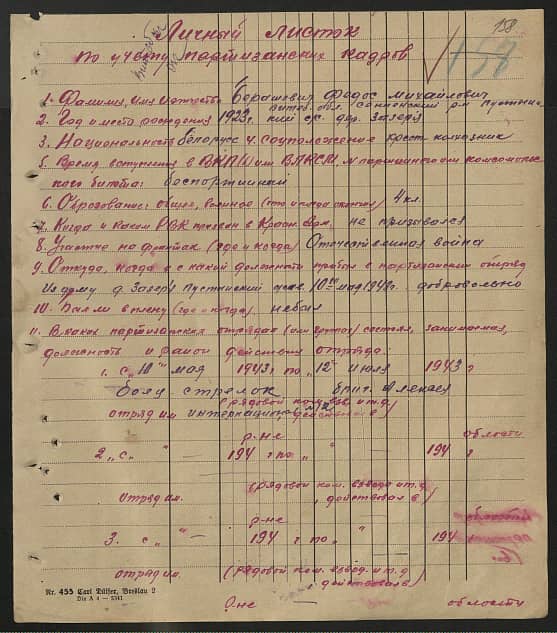 158
Личный листок
158
по учету партизанских кадров
1. Фамилия, имя и отчество Берашович Федос Михайлович
Витеб. обл. Сенненский р-н Пустынс
2. Год и место рождения 1923г. кий с/с. дер. Зазерья
3. Национальность белорусс 4. Соцположение крест. колхозник
5. Время вступления в ВКП(б) или ВЛКСМ, № партийного или комсомольс
кого билета: беспортийный
6. Образование: общее, военное (что и когда окончил) 4 кл.
7. Когда и каким РВК призван в Красн. Арм. не призывался
8. Участие на фронтах (где и когда) Отечественная война
9. Откуда, когда и с какой должности прибыл в партизанский отряд
Из дому д. Зазерь Пустынский 10го мая 194 г. добровольно
10. Был ли в плену (где и когда). небыл
11. В каких партизанских отрядах (или группах) состоял, занимаемая,
должность и район действий отряда:
1. с "10" мая 1943 г по "12" июля 1943 г
боец стрелок бриг. Алексея
(рядовой ком. взв. и т.д.
отряд им. интернационал действовал в)
р-не области
2. с " — 194 г по " — 194 г.
(рядовой, ком. взвода и т.д.
отряд им. , действовал в)
р-не
3. с " — 194 г по " 194
отряд им. (рядовой, ком. взвод. и т.д
действовал в
Nr. 455 Carl Dülfer, Breslau 2
Din A 4 — 2341
р-не — области